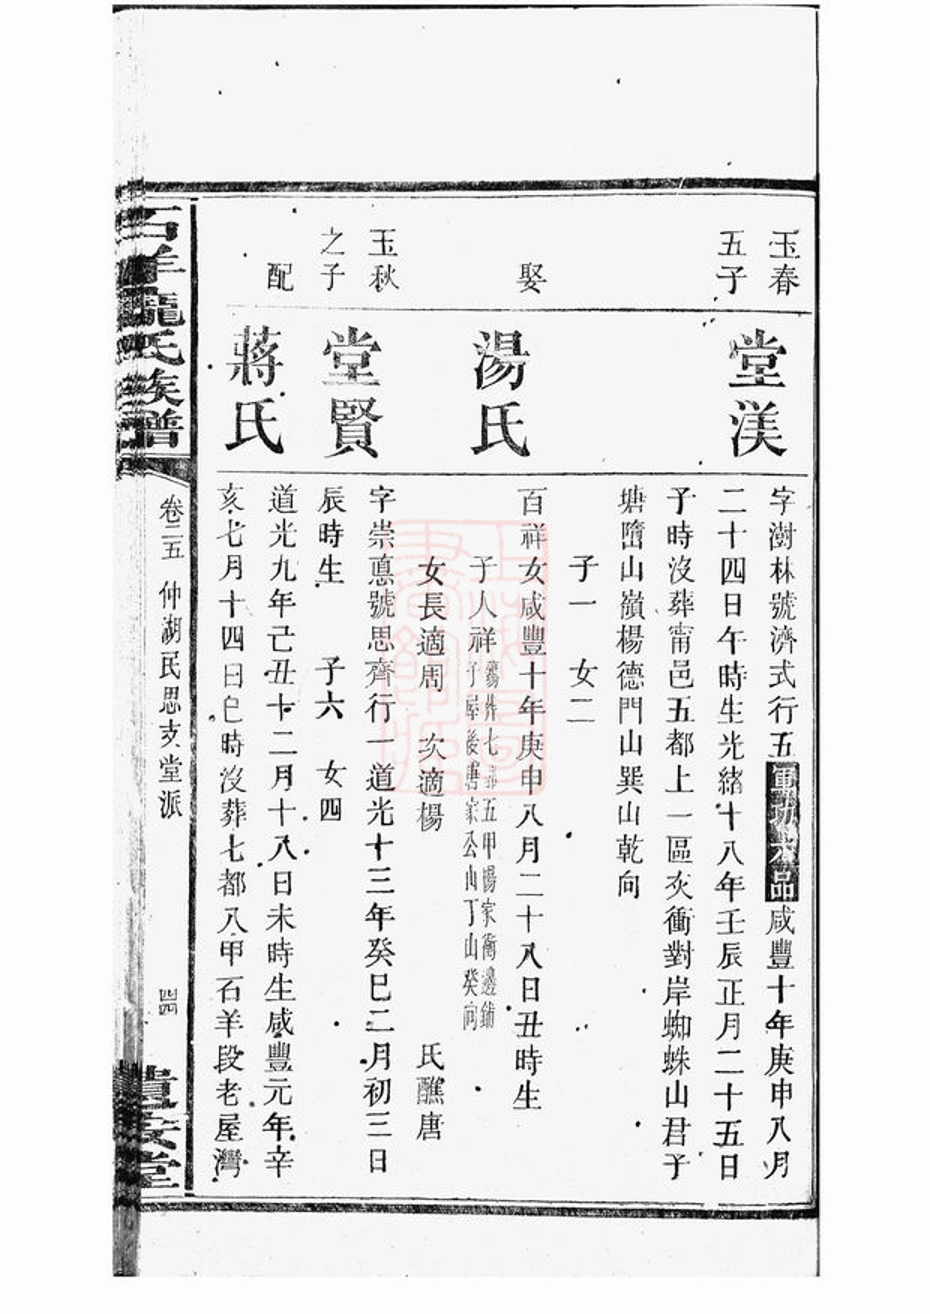 玉春
五子
堂渼
字澍林號濟式行五軍功六品咸豐十年庚申八月
二十四日午時生光緒十八年壬辰正月二十五日
子時沒葬甯邑五都上一區灰衝對岸蜘蛛山君子
塘墮山嶺楊德門山巽山乾向
子一 女二
娶
湯氏
百祥女咸豐十年庚申八月二十八日丑時生
子人祥
七都五甲楊家衝邊鋪
子屋後唐家公山丁山癸向
女長適周 次適楊 氏醮唐
玉秋
之子
堂賢
字崇悳號思齊行一道光十三年癸巳二月初三日
辰時生 子六 女四
配
蔣氏
道光九年己丑十二月十八日未時生咸豐元年辛
亥七月十四日巳時沒葬七都八甲石羊段老屋灣
石羊龍氏族譜
卷二五 仲湖民思支堂派
四四